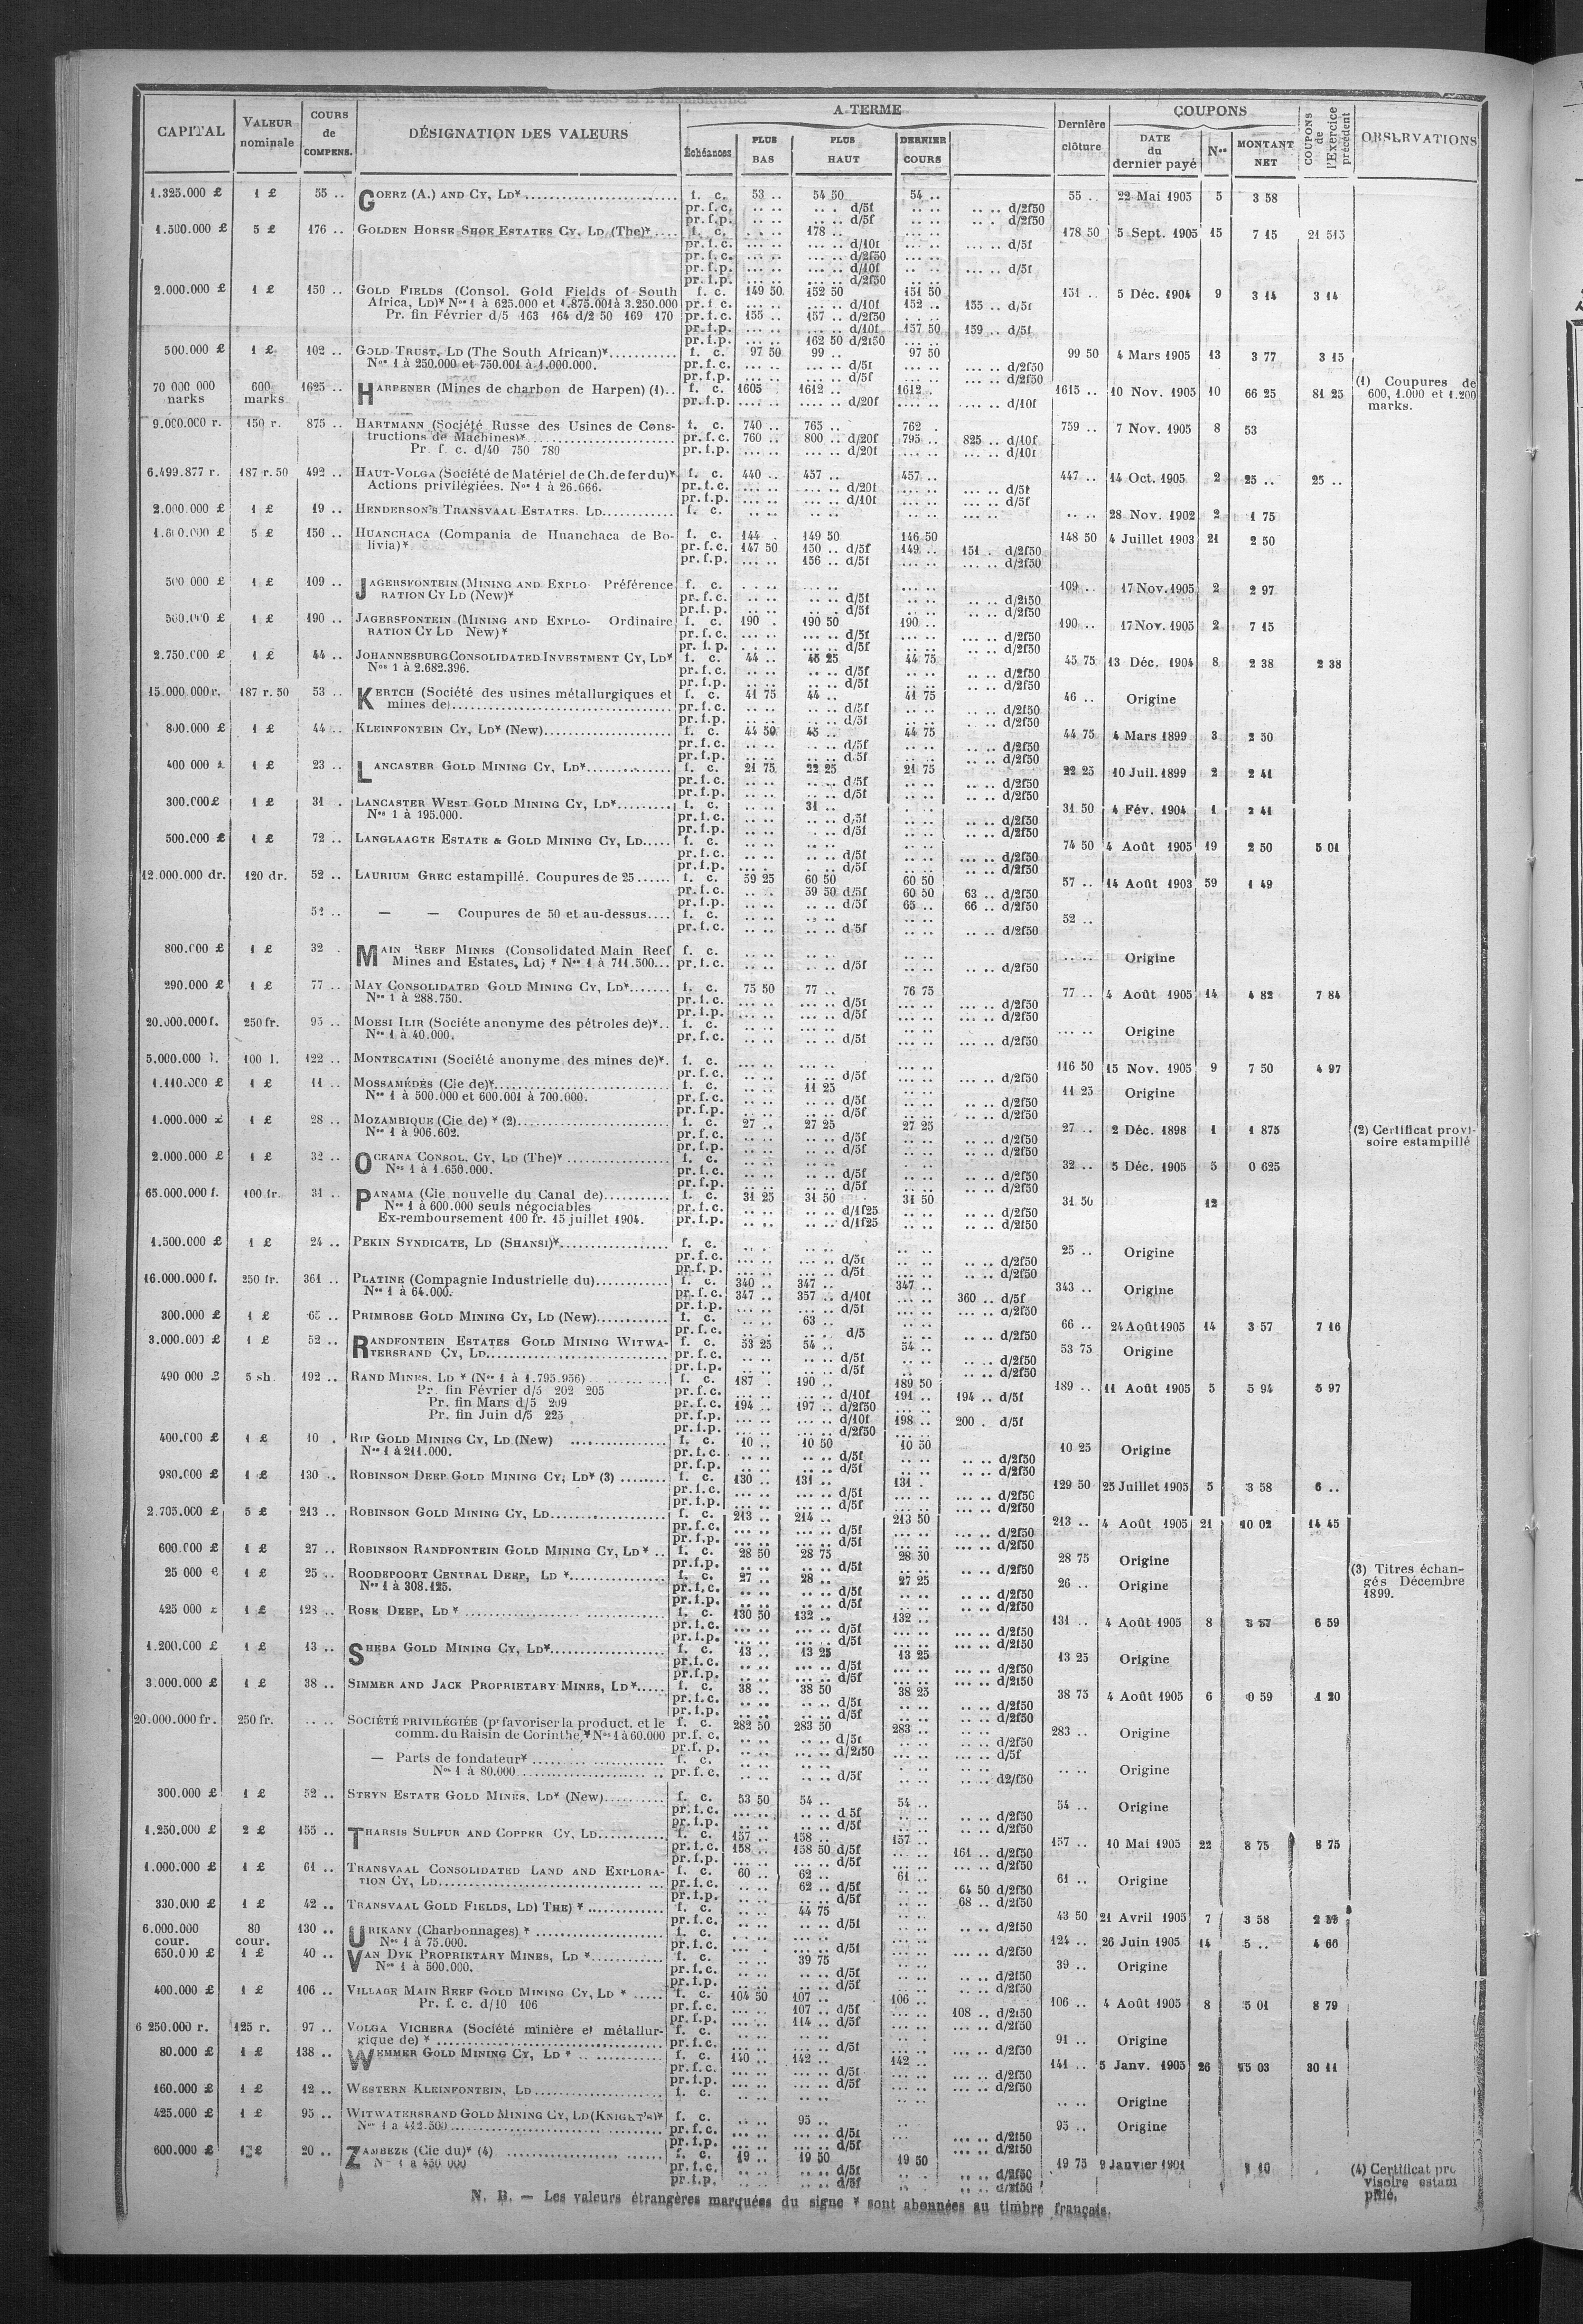 CAPITAL | VALEUR nominale | COURS de COMPENS. | DÉSIGNATION DES VALEURS | A TERME | Dernière clôture | COUPONS | COUPONS de l'Exercice précédent | OBSERVATIONS
Échéances | PLUS BAS | PLUS HAUT | DERNIER COURS | DATE du dernier payé | Nos | MONTANT NET
1.325.000 £ 1 £ 55 .. GOERZ (A.) AND CY, LD* f. c. 53 .. 54 50 54 .. 55 .. 22 Mai 1905 5 3 58
pr. f. c. .. .. .. . d/5f .. .. .. .. d/2f50
pr. f. p. .. .. .. . d/5f .. .. .. .. d/2f50
1.500.000 £ 5 £ 176 .. GOLDEN HORSE SHOE ESTATES CY, LD (The)* f. c. 178 .. 178 50 5 Sept. 1905 15 7 15 21 515
pr. f. c. d/10f d/5f
pr. f. c. d/2f50
pr. f. p. d/10f d/5f
pr. f. p. d/2f50
2.000.000 £ 1 £ 150 .. GOLD FIELDS (Consol. Gold Fields of South f. c. 149 50 152 50 151 50 151 .. 5 Déc. 1904 9 3 14 3 14
Africa, LD)* Nos 1 à 625.000 et 1.875.001 à 3.250.000 pr. f. c. d/10f 152 .. 155 .. d/5f
Pr. fin Février d/5 163 164 d/2 50 169 170 pr. f. c. 155 .. 157 .. d/2f50
pr. f. p. d/10f 157 50 159 .. d/5f
pr. f. p. 162 50 d/2f50
500.000 £ 1 £ 102 .. GOLD TRUST, LD (The South African)* f. c. 97 50 99 .. 97 50 99 50 4 Mars 1905 13 3 77 3 15
Nos 1 à 250.000 et 750.001 à 1.000.000. pr. f. c. d/5f d/2f50
pr. f. p. d/5f d/2f50
70 000 000 marks 600 marks 1625 .. HARPENER (Mines de charbon de Harpen) (1).. f. c. 1605 1612 .. 1612 . 1615 .. 10 Nov. 1905 10 66 25 81 25 (1) Coupures de 600, 1.000 et 1.200 marks.
pr. f. p. d/20f d/10f
9.000.000 r. 150 r. 875 .. HARTMANN (Société Russe des Usines de Cons- f. c. 740 .. 765 .. 762 . 759 .. 7 Nov. 1905 8 53
tructions de Machines)* pr. f. c. 760 .. 800 .. d/20f 795 .. 825 .. d/10f
Pr. f. c. d/40 750 780 pr. f. p. d/20f d/10f
6.499.877 r. 187 r. 50 492 .. HAUT-VOLGA (Société de Matériel de Ch. de fer du)* f. c. 440 .. 457 457 .. 447 .. 14 Oct. 1905 2 25 .. 25 ..
Actions privilégiées. Nos 1 à 26.666. pr. f. c. d/20f d/5f
pr. f. p. d/10f d/5f
2.000.000 £ 1 £ 19 .. HENDERSON'S TRANSVAAL ESTATES. LD f. c. 28 Nov. 1902 2 1 75
5 £ 150 .. HUANCHACA (Compania de Huanchaca de Bo- f. c. 144 . 149 50 146 50 148 50 4 Juillet 1903 21 2 50
livia)* pr. f. c. 147 50 150 .. d/5f 149 .. 151 . d/2f50
pr. f. p. 156 .. d/5f d/2f50
500 000 £ 1 £ 109 .. JAGERSFONTEIN (MINING AND EXPLO- Préférence f. c. 109 .. 17 Nov. 1905 2 2 97
RATION CY LD (New)* pr. f. c. d/5f d/2f50
pr. f. p. d/5f d/2f50
1 £ 190 .. JAGERSFONTEIN (MINING AND EXPLO- Ordinaire f. c. 190 . 190 50 190 .. 190 .. 17 Nov. 1905 2 7 15
RATION CY LD New)* pr. f. c. d/5f d/2f50
pr. f. p. d/5f d/2f50
2.750.000 £ 1 £ 44 .. JOHANNESBURG CONSOLIDATED INVESTMENT CY, LD* f. c. 44 .. 45 25 44 75 45 75 13 Déc. 1904 8 2 38 2 38
Nos 1 à 2.682.396. pr. f. c. d/5f d/2f50
pr. f. p. d/5f d/2f50
15.000 000 r. 187 r. 50 53 .. KERTCH (Société des usines métallurgiques et f. c. 41 75 44 .. 41 75 46 .. Origine
mines de) pr. f. c. d/5f d/2f50
pr. f. p. d/5f d/2f50
800.000 £ 1 £ 44 .. KLEINFONTEIN CY, LD* (New) f. c. 44 50 45 .. 44 75 44 75 4 Mars 1899 3 2 50
pr. f. c. d/5f d/2f50
pr. f. p. d/5f d/2f50
400 000 £ 1 £ 23 .. LANCASTER GOLD MINING CY, LD* f. c. 21 75 22 25 21 75 22 25 10 Juil. 1899 2 2 41
pr. f. c. d/5f d/2f50
pr. f. p. d/5f d/2f50
300.000 £ 1 £ 31 . LANCASTER WEST GOLD MINING CY, LD* f. c. 31 .. 31 50 4 Fév. 1904 1 2 41
Nos 1 à 195.000. pr. f. c. d/5f d/2f50
pr. f. p. d/5f d/2f50
500.000 £ 1 £ 72 .. LANGLAAGTE ESTATE & GOLD MINING CY, LD f. c. 74 50 4 Août 1905 19 2 50 5 01
pr. f. c. d/5f d/2f50
pr. f. p. d/5f d/2f50
12.000.000 dr. 120 dr. 52 .. LAURIUM GREC estampillé. Coupures de 25 f. c. 59 25 60 50 60 50 57 .. 14 Août 1903 59 1 49
pr. f. c. 59 50 d/5f 60 50 63 .. d/2f50
pr. f. p. d/5f 65 .. 66 .. d/2f50
52 .. — — Coupures de 50 et au-dessus f. c. 52 ..
pr. f. c. d/5f d/2f50
800.000 £ 1 £ 32 . MAIN REEF MINES (Consolidated Main Reef f. c. Origine
Mines and Estates, Ld) * Nos 1 à 711.500 pr. f. c. d/5f d/2f50
290.000 £ 1 £ 77 .. MAY CONSOLIDATED GOLD MINING CY, LD* f. c. 75 50 77 .. 76 75 77 .. 4 Août 1905 14 4 82 7 84
Nos 1 à 288.750. pr. f. c. d/5f d/2f50
pr. f. p. d/5f d/2f50
20.000.000 f. 250 fr. 95 .. MOESI ILIR (Société anonyme des pétroles de)* f. c. Origine
Nos 1 à 40.000. pr. f. c. d/5f d/2f50
5.000.000 l. 100 l. 122 .. MONTECATINI (Société anonyme des mines de)* f. c. 116 50 15 Nov. 1905 9 7 50 4 97
pr. f. c. d/5f d/2f50
1.110.000 £ 1 £ 11 .. MOSSAMÉDÈS (Cie de)* f. c. 11 25 11 25 Origine
Nos 1 à 500.000 et 600.001 à 700.000. pr. f. c. d/5f d/2f50
pr. f. p. d/5f d/2f50
1.000.000 £ 1 £ 28 .. MOZAMBIQUE (Cie de) * (2) f. c. 27 .. 27 25 27 25 27 .. 2 Déc. 1898 1 1 875 (2) Certificat provi-soire estampillé
Nos 1 à 906.602. pr. f. c. d/5f d/2f50
pr. f. p. d/5f d/2f50
2.000.000 £ 1 £ 32 .. OCEANA CONSOL. CY, LD (The)* f. c. 32 .. 5 Déc. 1905 5 0 625
Nos 1 à 1.650.000. pr. f. c. d/5f d/2f50
pr. f. p. d/5f d/2f50
65.000.000 f. 100 fr. 31 .. PANAMA (Cie nouvelle du Canal de) f. c. 31 25 31 50 31 50 31 50 12
Nos 1 à 600.000 seuls négociables pr. f. c. d/1f25 d/2f50
Ex-remboursement 100 fr. 15 juillet 1904. pr. f. p. d/1f25 d/2f50
1.500.000 £ 1 £ 24 .. PEKIN SYNDICATE, LD (SHANSI)* f. c. 25 .. Origine
pr. f. c. d/5f d/2f50
pr. f. p. d/5f d/2f50
16.000.000 f. 250 fr. 361 .. PLATINE (Compagnie Industrielle du) f. c. 340 .. 347 .. 347 .. 343 .. Origine
Nos 1 à 64.000. pr. f. c. 347 .. 357 .. d/10f 360 .. d/5f
pr. f. p. d/5f d/2f50
300.000 £ 1 £ 65 .. PRIMROSE GOLD MINING CY, LD (New) f. c. 63 .. 66 .. 24 Août 1905 14 3 57 7 16
pr. f. c. d/5 d/2f50
3.000.000 £ 1 £ 52 .. RANDFONTEIN ESTATES GOLD MINING WITWA- f. c. 53 25 54 .. 54 .. 53 75 Origine
TERSRAND CY, LD pr. f. c. d/5f d/2f50
pr. f. p. d/5f d/2f50
490 000 £ 5 sh. 192 .. RAND MINES. LD * (Nos 1 à 1.795.956) f. c. 187 . 190 .. 189 50 189 .. 11 Août 1905 5 5 94 5 97
Pr. fin Février d/5 202 205 pr. f. c. d/10f 191 .. 194 .. d/5f
Pr. fin Mars d/5 209 pr. f. c. 194 .. 197 .. d/2f50
Pr. fin Juin d/5 225 pr. f. p. d/10f 198 .. 200 . d/5f
pr. f. p. d/2f50
400.000 £ 1 £ 10 . RIP GOLD MINING CY, LD (New) f. c. 10 .. 10 50 10 50 10 25 Origine
Nos 1 à 211.000. pr. f. c. d/5f d/2f50
pr. f. p. d/5f d/2f50
980.000 £ 1 £ 130 .. ROBINSON DEEP GOLD MINING CY, LD* (3) f. c. 130 .. 131 .. 131 . 129 50 25 Juillet 1905 5 3 58 6 ..
pr. f. c. d/5f d/2f50
pr. f. p. d/5f d/2f50
2.705.000 £ 5 £ 213 .. ROBINSON GOLD MINING CY, LD f. c. 213 .. 214 .. 213 50 213 .. 4 Août 1905 21 10 02 14 45
pr. f. c. d/5f d/2f50
pr. f. p. d/5f d/2f50
600.000 £ 1 £ 27 .. ROBINSON RANDFONTEIN GOLD MINING CY, LD* f. c. 28 50 28 75 28 50 28 75 Origine
pr. f. p. d/5f d/2f50
25 000 1 £ 25 .. ROODEPOORT CENTRAL DEEP, LD * f. c. 27 .. 28 .. 27 25 26 .. Origine (3) Titres échan-gés Décembre 1899.
Nos 1 à 308.125. pr. f. c. d/5f d/2f50
pr. f. p. d/5f d/2f50
425 000 £ 1 £ 128 .. ROSE DEEP, LD * f. c. 130 50 132 .. 132 .. 131 .. 4 Août 1905 8 3 57 6 59
pr. f. c. d/5f d/2f50
pr. f. p. d/5f d/2f50
1.200.000 £ 1 £ 13 .. SHEBA GOLD MINING CY, LD* f. c. 13 .. 13 25 13 25 13 25 Origine
pr. f. c. d/5f d/2f50
pr. f. p. d/5f d/2f50
3.000.000 £ 1 £ 38 .. SIMMER AND JACK PROPRIETARY MINES, LD* f. c. 38 .. 38 50 38 25 38 75 4 Août 1905 6 0 59 1 20
pr. f. c. d/5f d/2f50
pr. f. p. d/5f d/2f50
20.000.000 fr. 250 fr. .. .. SOCIÉTÉ PRIVILÉGIÉE (pr favoriser la product. et le f. c. 282 50 283 50 283 .. 283 .. Origine
comm. du Raisin de Corinthe)* Nos 1 à 60.000 pr. f. c. d/5f d/2f50
pr. f. p. d/2f50 d/5f
— Parts de fondateur* f. c. Origine
Nos 1 à 80.000 pr. f. c. d/5f d2/f50
300.000 £ 1 £ 52 .. STEYN ESTATE GOLD MINES, LD* (New) f. c. 53 50 54 .. 54 .. 54 .. Origine
pr. f. c. d 5f d/2f50
pr. f. p. d/5f d/2f50
1.250.000 £ 2 £ 155 .. THARSIS SULFUR AND COPPER CY, LD f. c. 157 .. 158 .. 157 .. 157 .. 10 Mai 1905 22 8 75 8 75
pr. f. c. 158 .. 158 50 d/5f 161 .. d/2f50
pr. f. p. d/5f d/2f50
1.000.000 £ 1 £ 61 .. TRANSVAAL CONSOLIDATED LAND AND EXPLORA- f. c. 60 .. 62 .. 61 .. 61 .. Origine
TION CY, LD pr. f. c. 62 .. d/5f 64 50 d/2f50
pr. f. p. d/5f 68 .. d/2f50
330.000 £ 1 £ 42 .. TRANSVAAL GOLD FIELDS, LD) THE) * f. c. 44 75 43 50 21 Avril 1905 7 3 58
pr. f. c. d/5f d/2f50
6.000.000 cour. 80 cour. 130 .. URIKANY (Charbonnages) * f. c. 124 .. 26 Juin 1905 14 5 .. 4 66
Nos 1 à 75.000. pr. f. c. d/5f d/2f50
650.000 £ 1 £ 40 .. VAN DYK PROPRIETARY MINES, LD * f. c. 39 75 39 .. Origine
Nos 1 à 500.000. pr. f. c. d/5f d/2f50
pr. f. p. d/5f d/2f50
400.000 £ 1 £ 106 .. VILLAGE MAIN REEF GOLD MINING CY, LD * f. c. 104 50 107 .. 106 .. 106 .. 4 Août 1905 8 5 01 8 79
Pr. f. c. d/10 106 pr. f. c. 107 .. d/5f 108 .. d/2f50
pr. f. p. 114 .. d/5f d/2f50
6 250.000 r. 125 r. 97 .. VOLGA VICHERA (Société minière et métallur- f. c. 91 .. Origine
gique de) * pr. f. c. d/5f d/2f50
80.000 £ 1 £ 138 .. WEMMER GOLD MINING CY, LD * f. c. 140 .. 142 .. 142 .. 141 .. 5 Janv. 1905 26 03 30 11
pr. f. c. d/5f d/2f50
pr. f. p. d/5f d/2f50
160.000 £ 1 £ 12 .. WESTERN KLEINFONTEIN, LD f. c. Origine
425.000 £ 1 £ 95 .. WITWATERSRAND GOLD MINING CY, LD (KNIGHT'S)* f. c. 95 .. 95 .. Origine
Nos 1 à 412.500 pr. f. c. d/5f d/2f50
pr. f. p. d/5f d/2f50
600.000 £ 1 £ 20 .. ZAMBEZE (Cie du)* (4) f. c. 19 .. 19 50 19 50 19 75 9 Janvier 1901 (4) Certificat pro visoire estam pillé.
Nos 1 à 450 000 pr. f. c. d/5f d/2f50
pr. f. p. d/5f d/2f50
N. B. — Les valeurs étrangères marquées du signe * sont abonnées au timbre français.